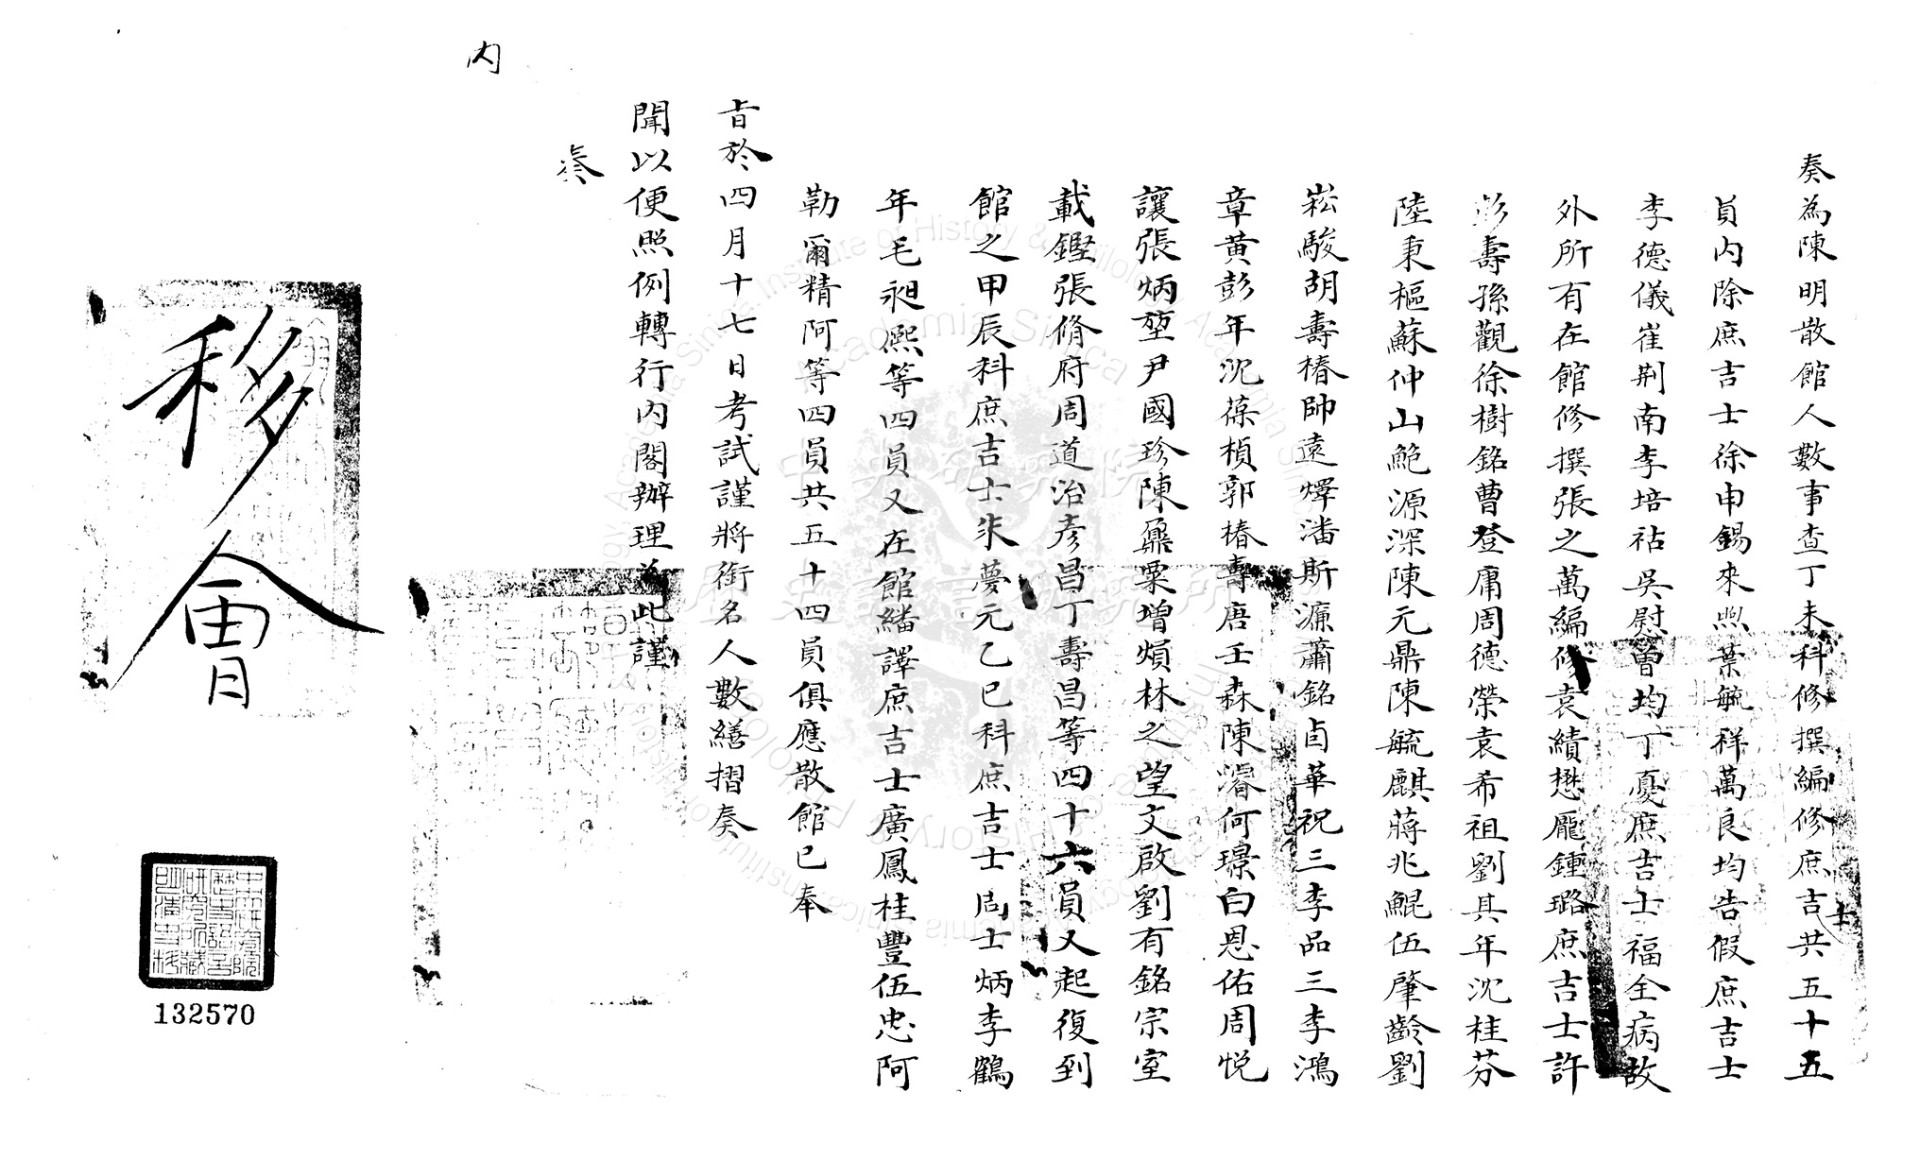 奏為陳明散館人數事查丁未科修撰編修庶吉共五十五
士
員內除庶吉士徐申錫來煦葉毓祥萬良均告假庶吉士
李德儀崔荆南李培祜吳慰曽均丁憂庶吉士福全病故
外所有在館修撰張之萬編修袁績懋龐鍾璐庶吉士許
彭壽孫觀徐樹銘曹登庸周德榮袁希祖劉其年沈桂芬
陸秉樞蘇仲山鮑源深陳元鼎陳毓麒蔣兆鯤伍肇齡劉
崧駿胡壽椿帥遠燡潘斯濂蕭銘卣華祝三李品三李鴻
章黃彭年沈葆楨郭椿壽唐壬森陳濬何璟白恩佑周悅
讓張炳堃尹國珍陳鼐粟增熉林之望文啟劉有銘宗室
載鏗張脩府周道治彥昌丁壽昌等四十六員又起復到
館之甲辰科庶吉士朱夢元乙巳科庶吉士周士炳李鶴
年毛昶熙等四員又在館繙譯庶吉士廣鳳桂豐伍忠阿
勒爾精阿等四員共五十四員俱應散館已奉
旨於四月十七日考試謹將銜名人數繕摺奏
聞以便照例轉行內閣辦理為此謹
奏
內
移會
中央研究院歷史語言研究所藏明清史料
132570
中央研究院
歷史語言研究所
Institute of History & Philology, Academia Sinica